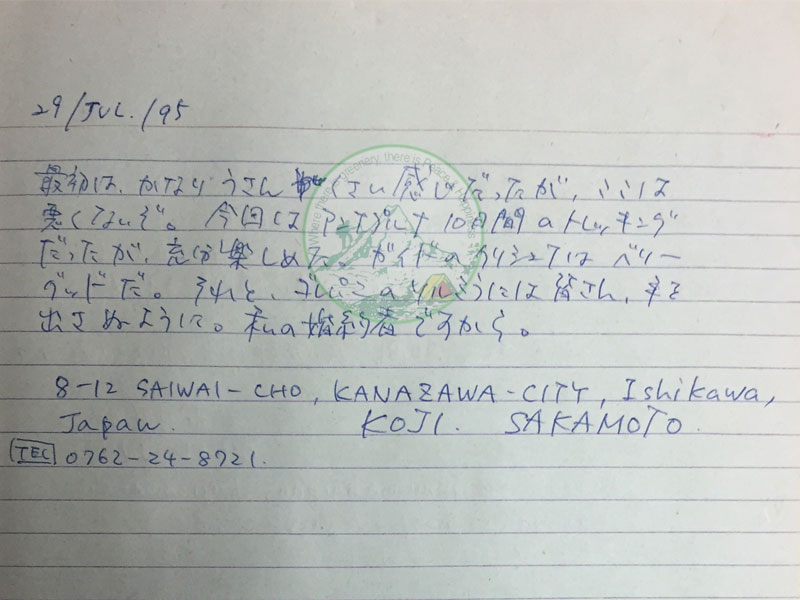 29/JUL./95
最初は、かなりうさんくさい感じだったが、ここは
悪くないぞ。今回はアンナプルナ10日間のトレッキング
だったが、充分楽しめた。ガイドのクリシュナはベリー
グッドだ。それと、には皆さん、手を
出さぬように。私の婚約者ですから。
8-12 SAIWAI-CHO, KANAZAWA-CITY, Ishikawa,
Japan. KOJI. SAKAMOTO.
TEL 0762-24-8721.
Where there is Greenery, there is Peace